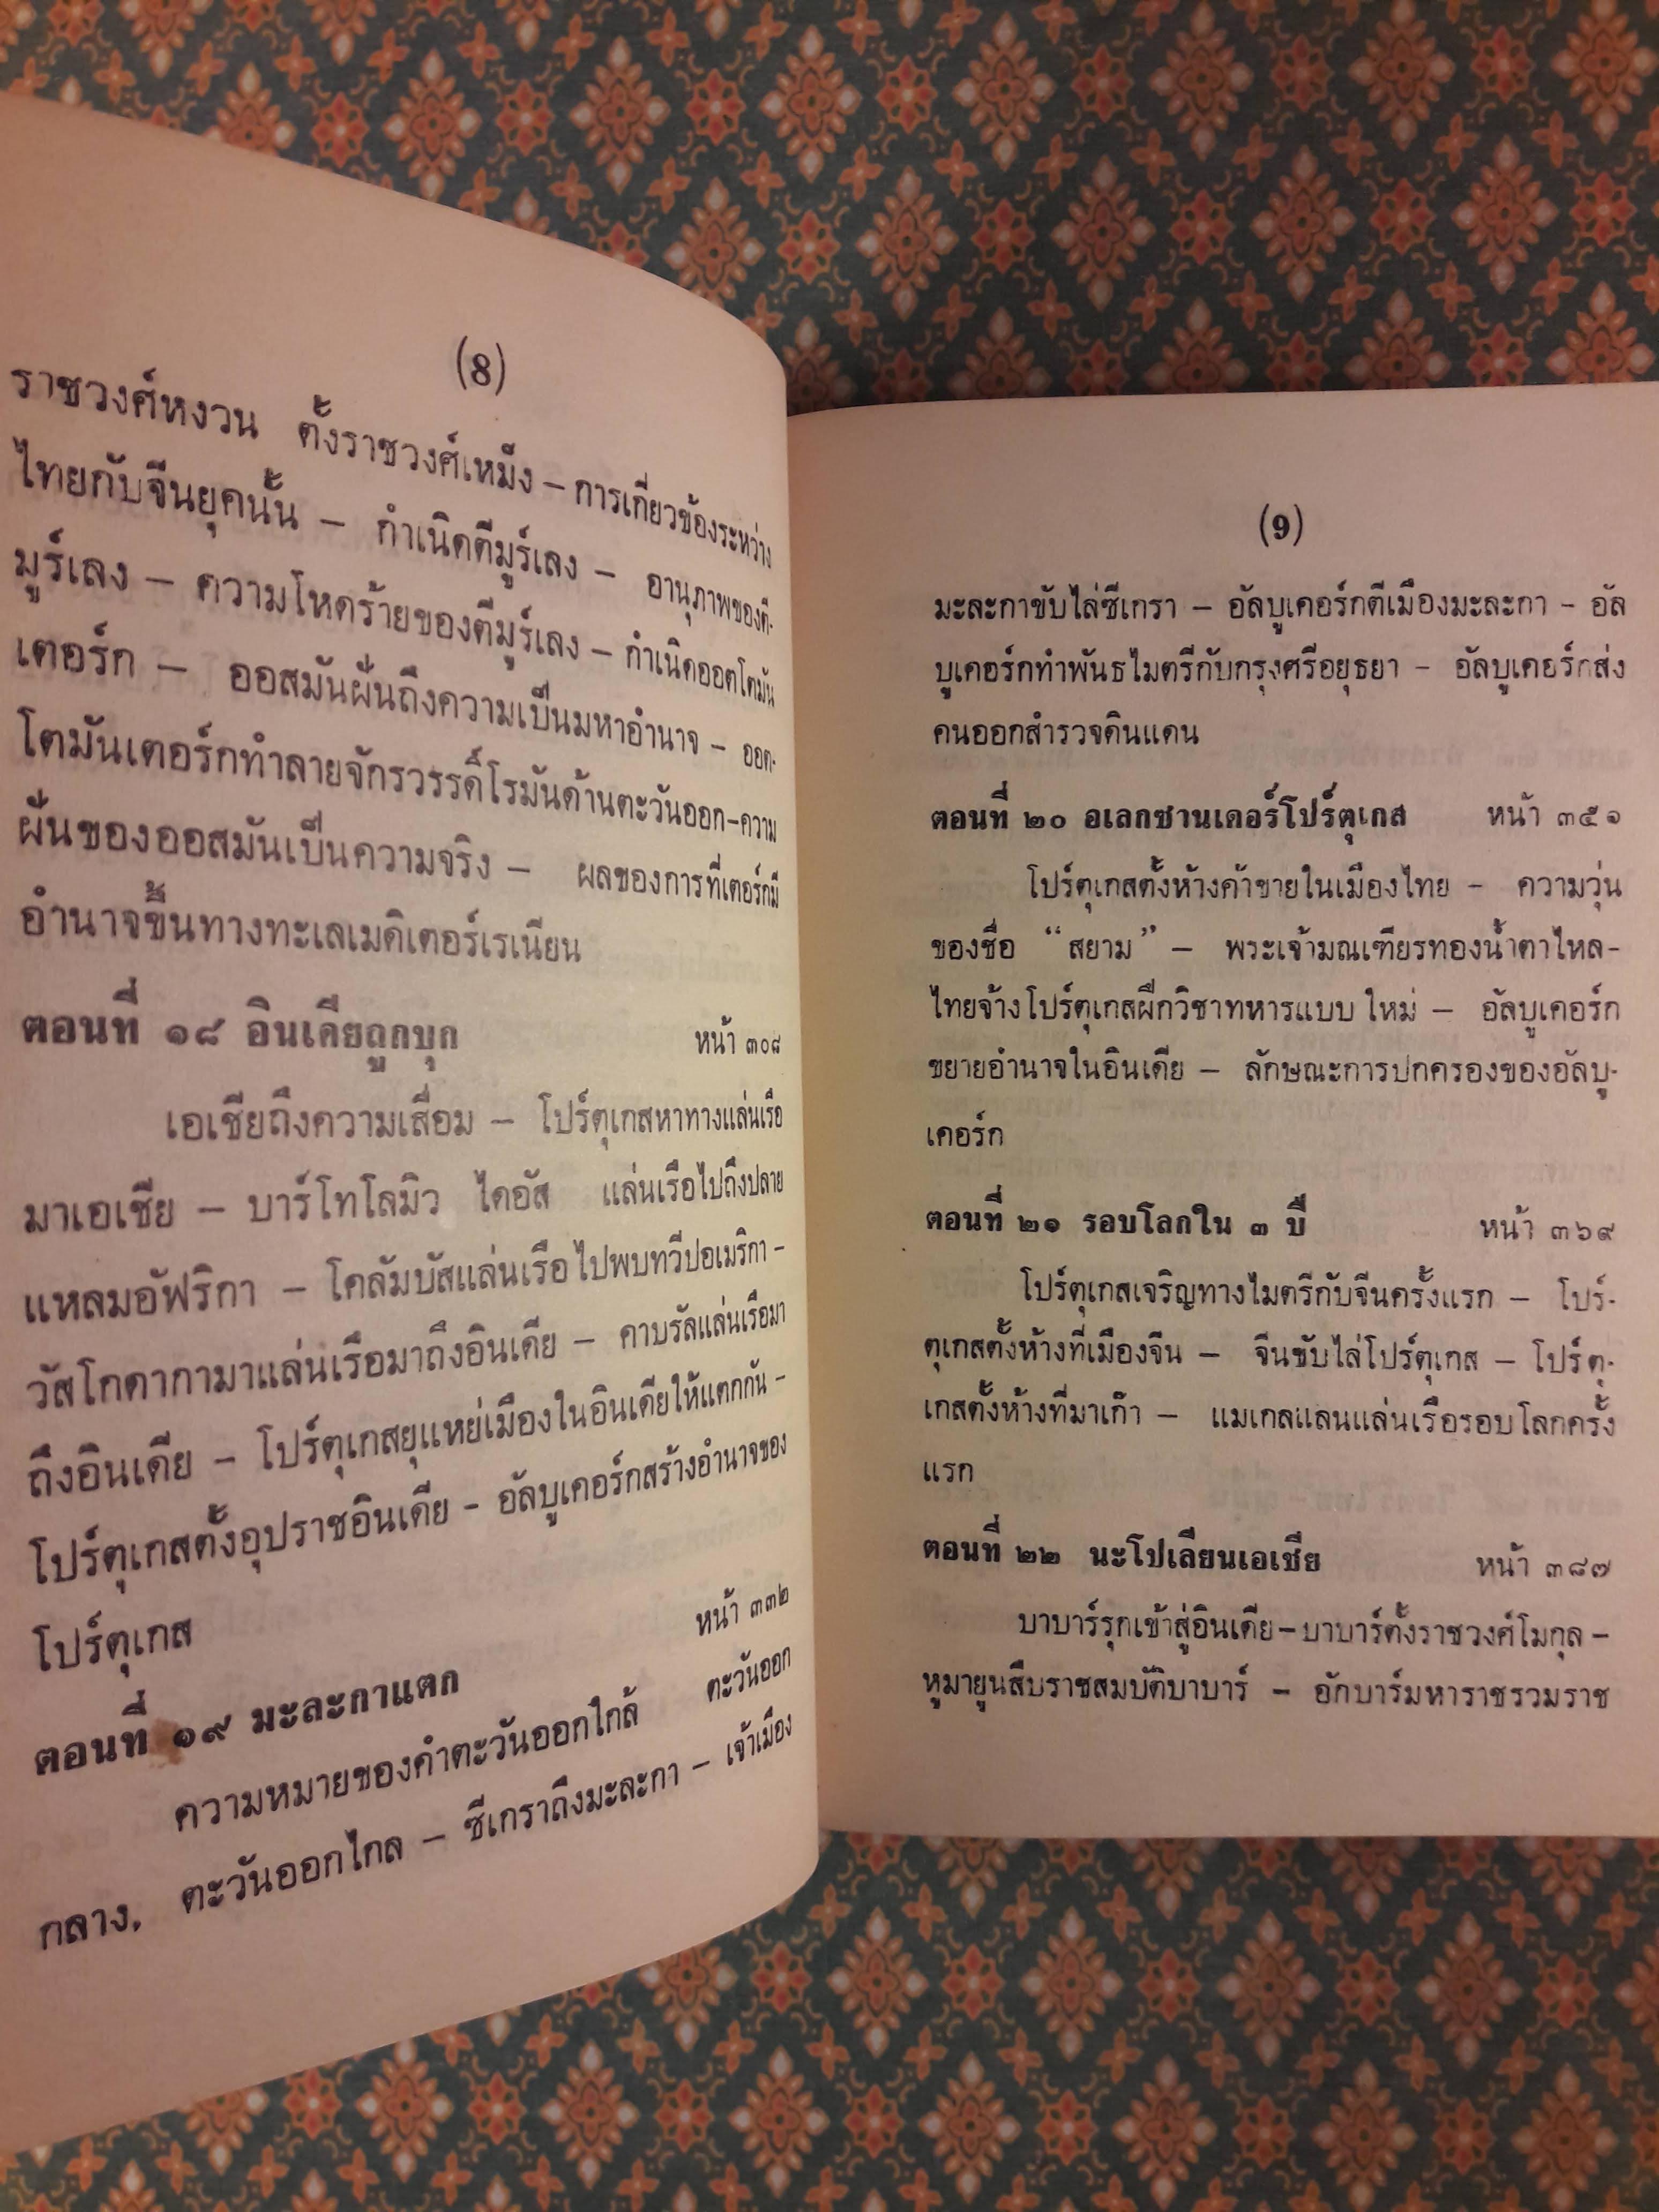 (8)
ราชวงศ์หงวน ตั้งราชวงศ์เหม็ง – การเกี่ยวข้องระหว่าง
ไทยกับจีนยุคนั้น – กำเนิดตีมูร์เลง – อานุภาพของตี-
มูร์เลง – ความโหดร้ายของตีมูร์เลง – กำเนิดออตโตมัน
เตอร์ก – ออสมันฝั่นถึงความเป็นมหาอำนาจ – ออต-
โตมันเตอร์กทำลายจักรวรรดิ์โรมันด้านตะวันออก–ความ
ฝั่นของออสมันเป็นความจริง – ผลของการที่เตอร์กมี
อำนาจขึ้นทางทะเลเมดิเตอร์เรเนียน
ตอนที่ ๑๘ อินเดียถูกบุก หน้า ๓๐๘
เอเชียถึงความเสื่อม – โปร์ตุเกสหาทางแล่นเรือ
มาเอเชีย – บาร์โทโลมิว ไดอัส แล่นเรือไปถึงปลาย
แหลมอัฟริกา – โคลัมบัสแล่นเรือไปพบทวีปอเมริกา –
วัสโกดากามาแล่นเรือมาถึงอินเดีย – คาบรัลแล่นเรือมา
ถึงอินเดีย – โปร์ตุเกสยุแหย่เมืองในอินเดียให้แตกกัน –
โปร์ตุเกสตั้งอุปราชอินเดีย – อัลบูเคอร์กสร้างอำนาจของ
โปร์ตุเกส
ตอนที่ ๑๙ มะละกาแตก หน้า ๓๓๒
ความหมายของคำตะวันออกใกล้ ตะวันออก
กลาง, ตะวันออกไกล – ซีเกราถึงมะละกา – เจ้าเมือง
(9)
มะละกาขับไล่ซีเกรา – อัลบูเคอร์กตีเมืองมะละกา – อัล
บูเคอร์กทำพันธไมตรีกับกรุงศรีอยุธยา – อัลบูเคอร์กส่ง
คนออกสำรวจดินแดน
ตอนที่ ๒๐ อเลกซานเดอร์โปร์ตุเกส หน้า ๓๕๑
โปร์ตุเกสตั้งห้างค้าขายในเมืองไทย – ความวุ่น
ของชื่อ “สยาม” – พระเจ้ามณเฑียรทองน้ำตาไหล–
ไทยจ้างโปร์ตุเกสฝึกวิชาทหารแบบใหม่ – อัลบูเคอร์ก
ขยายอำนาจในอินเดีย – ลักษณะการปกครองของอัลบู-
เคอร์ก
ตอนที่ ๒๑ รอบโลกใน ๓ ปี หน้า ๓๖๙
โปร์ตุเกสเจริญทางไมตรีกับจีนครั้งแรก – โปร์-
ตุเกสตั้งห้างที่เมืองจีน – จีนขับไล่โปร์ตุเกส – โปร์ตุ-
เกสตั้งห้างที่มาเก๊า – แมเกลแลนแล่นเรือรอบโลกครั้ง
แรก
ตอนที่ ๒๒ นะโปเลียนเอเชีย หน้า ๓๘๗
บาบาร์รุกเข้าสู่อินเดีย–บาบาร์ตั้งราชวงศ์โมกุล –
หูมายูนสืบราชสมบัติบาบาร์ – อักบาร์มหาราชรวมราช